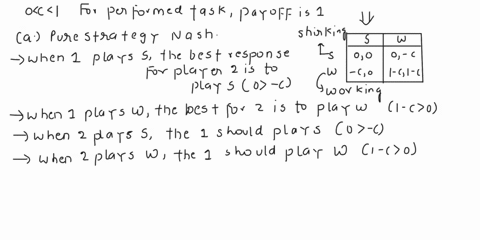 0<c<1 For performed task, payoff is 1
(a.) Pure strategy Nash.
shirking
S W
→ when 1 plays S, the best response
S 0,0 0,-c
for player 2 is to
W -c,0 1-c,1-c
play S (0>-c)
working
→ when 1 plays W, the best for 2 is to play W (1-c>0)
→ when 2 plays S, the 1 should play S (0>-c)
→ when 2 plays W, the 1 should play W (1-c>0)